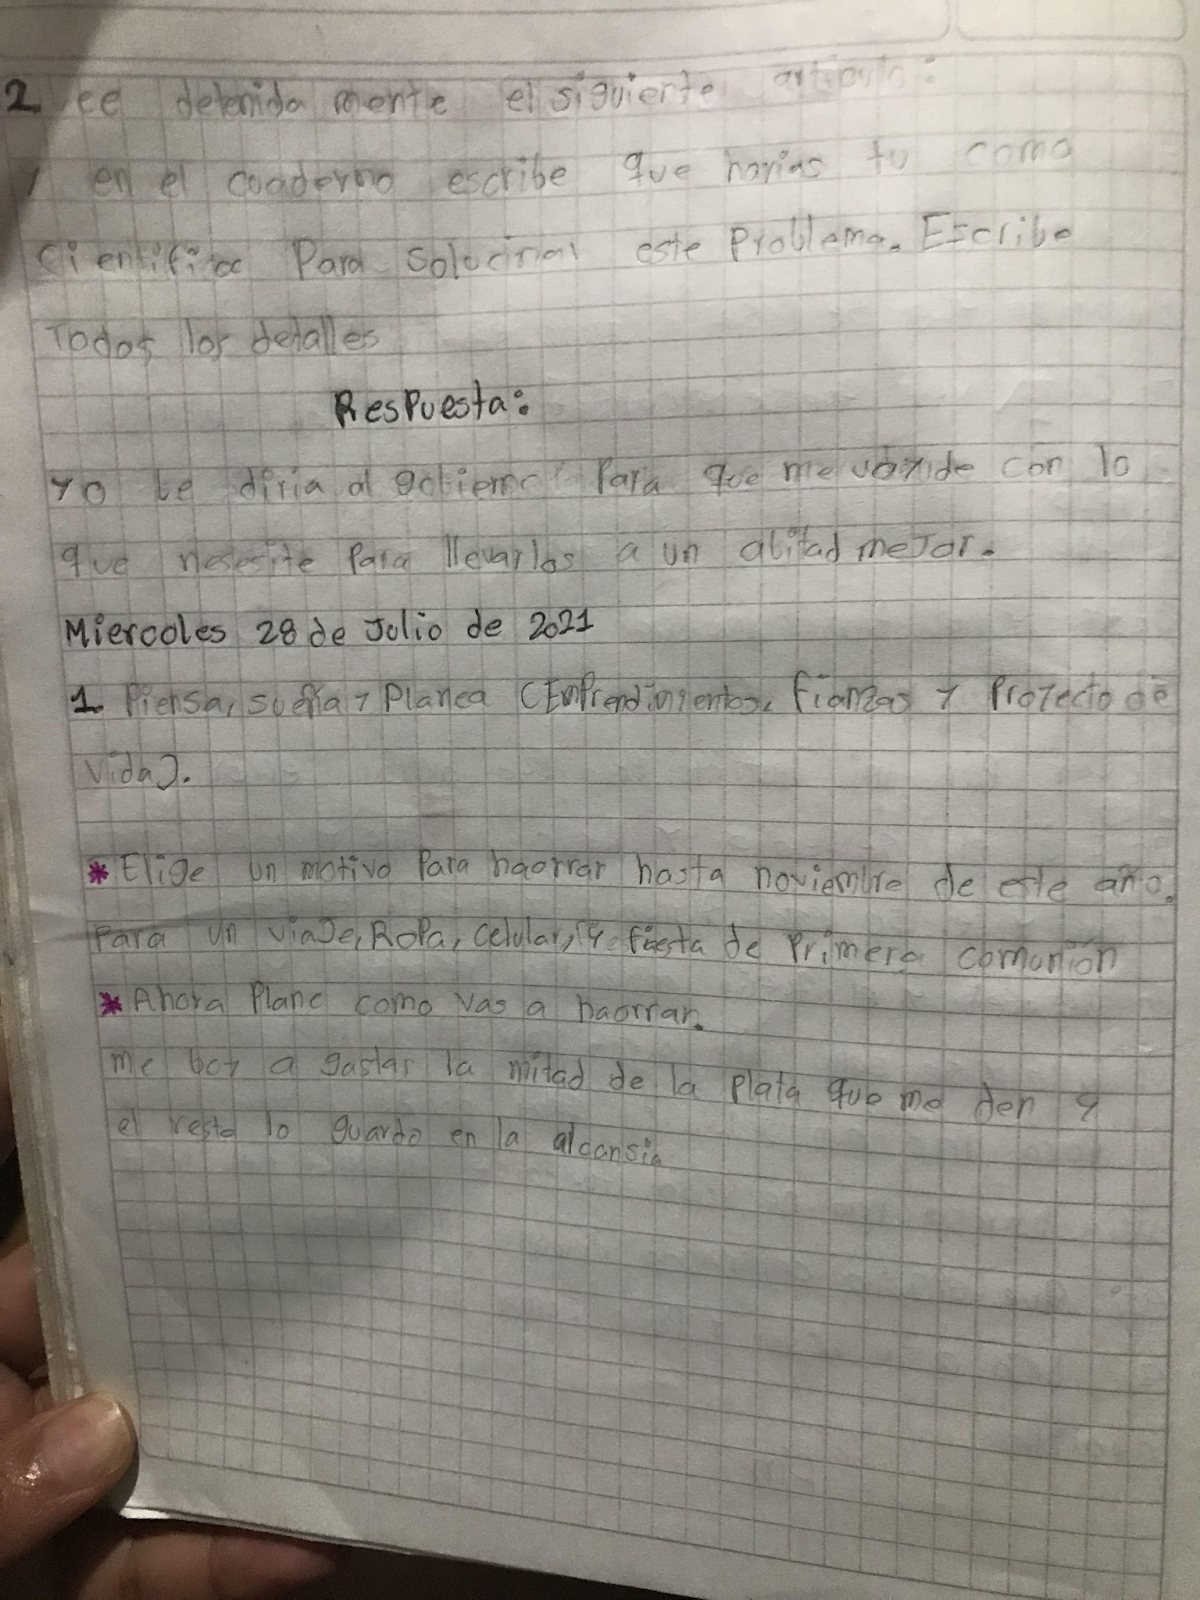 2. Lee detenida mente el siguiente articulo:
y en el cuaderno escribe que harias tu como
cientifico Para solucinal este Problema. Escribe
Todos los detalles
Respuesta:
yo le diria al gobierno Para que me con lo
que nesesite Para llevarlos a un abitad meJor.
Miercoles 28 de Julio de 2021
1. Piensa, sueña y Planea (Emprendimientos, fianzas y Proyecto de
vida).
* Elige un motivo Para haorrar hasta noviembre de este año.
Para un viaJe, RoPa, celular, fiesta de Primera comunión
* Ahora Plane como vas a haorrar.
me boy a gastar la mitad de la Plata que me den y
el resto lo guardo en la alcansia